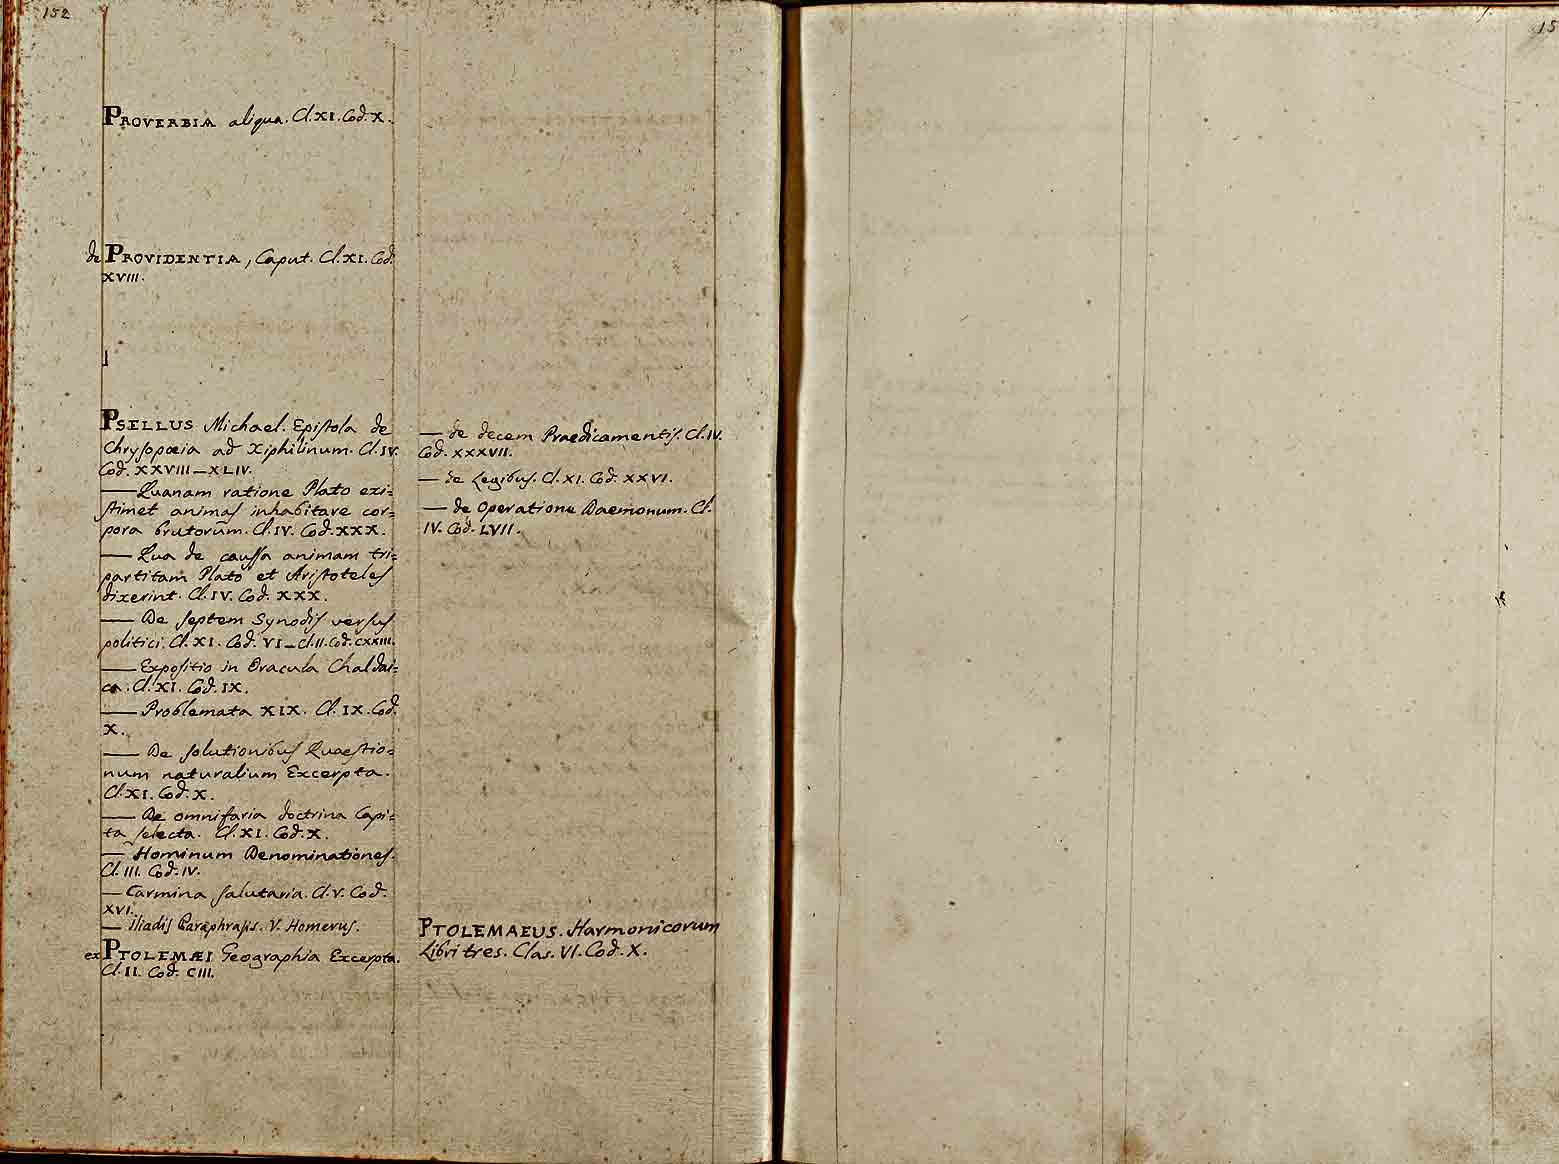 152
PROVERBIA aliqua. Cl. XI. Cod. X.
de PROVIDENTIA, Caput. Cl. XI. Cod.
XVIII.
PSELLUS Michael. Epistola de
Chrysopœia ad Xiphilinum. Cl. IV.
Cod. XXVIII — XLIV.
— Quanam ratione Plato exi=
stimet animas inhabitare cor=
pora brutorum. Cl. IV. Cod. XXX.
— Qua de caussa animam tri=
partitam Plato et Aristoteles
dixerint. Cl. IV. Cod. XXX.
— De septem Synodis versus
politici. Cl. XI. Cod. VI — Cl. II. Cod. CXXIII.
— Expositio in Oracula Chaldai=
ca. Cl. XI. Cod. IX.
— Problemata XIX. Cl. IX. Cod.
X.
— De solutionibus Quaestio=
num naturalium Excerpta.
Cl. XI. Cod. X.
— De omnifaria doctrina Capi=
ta selecta. Cl. XI. Cod. X.
— Hominum Denominationes.
Cl. III. Cod. IV.
— Carmina salutaria. Cl. V. Cod.
XVI.
— Iliadis Paraphrasis. V. Homerus.
ex PTOLEMÆI Geographia Excerpta.
Cl. II. Cod. CIII.
— de decem Praedicamentis. Cl. IV.
Cod. XXXVII.
— de Legibus. Cl. XI. Cod. XXVI.
— de Operatione Daemonum. Cl.
IV. Cod. LVII.
PTOLEMAEUS. Harmonicorum
Libri tres. Clas. VI. Cod. X.
15